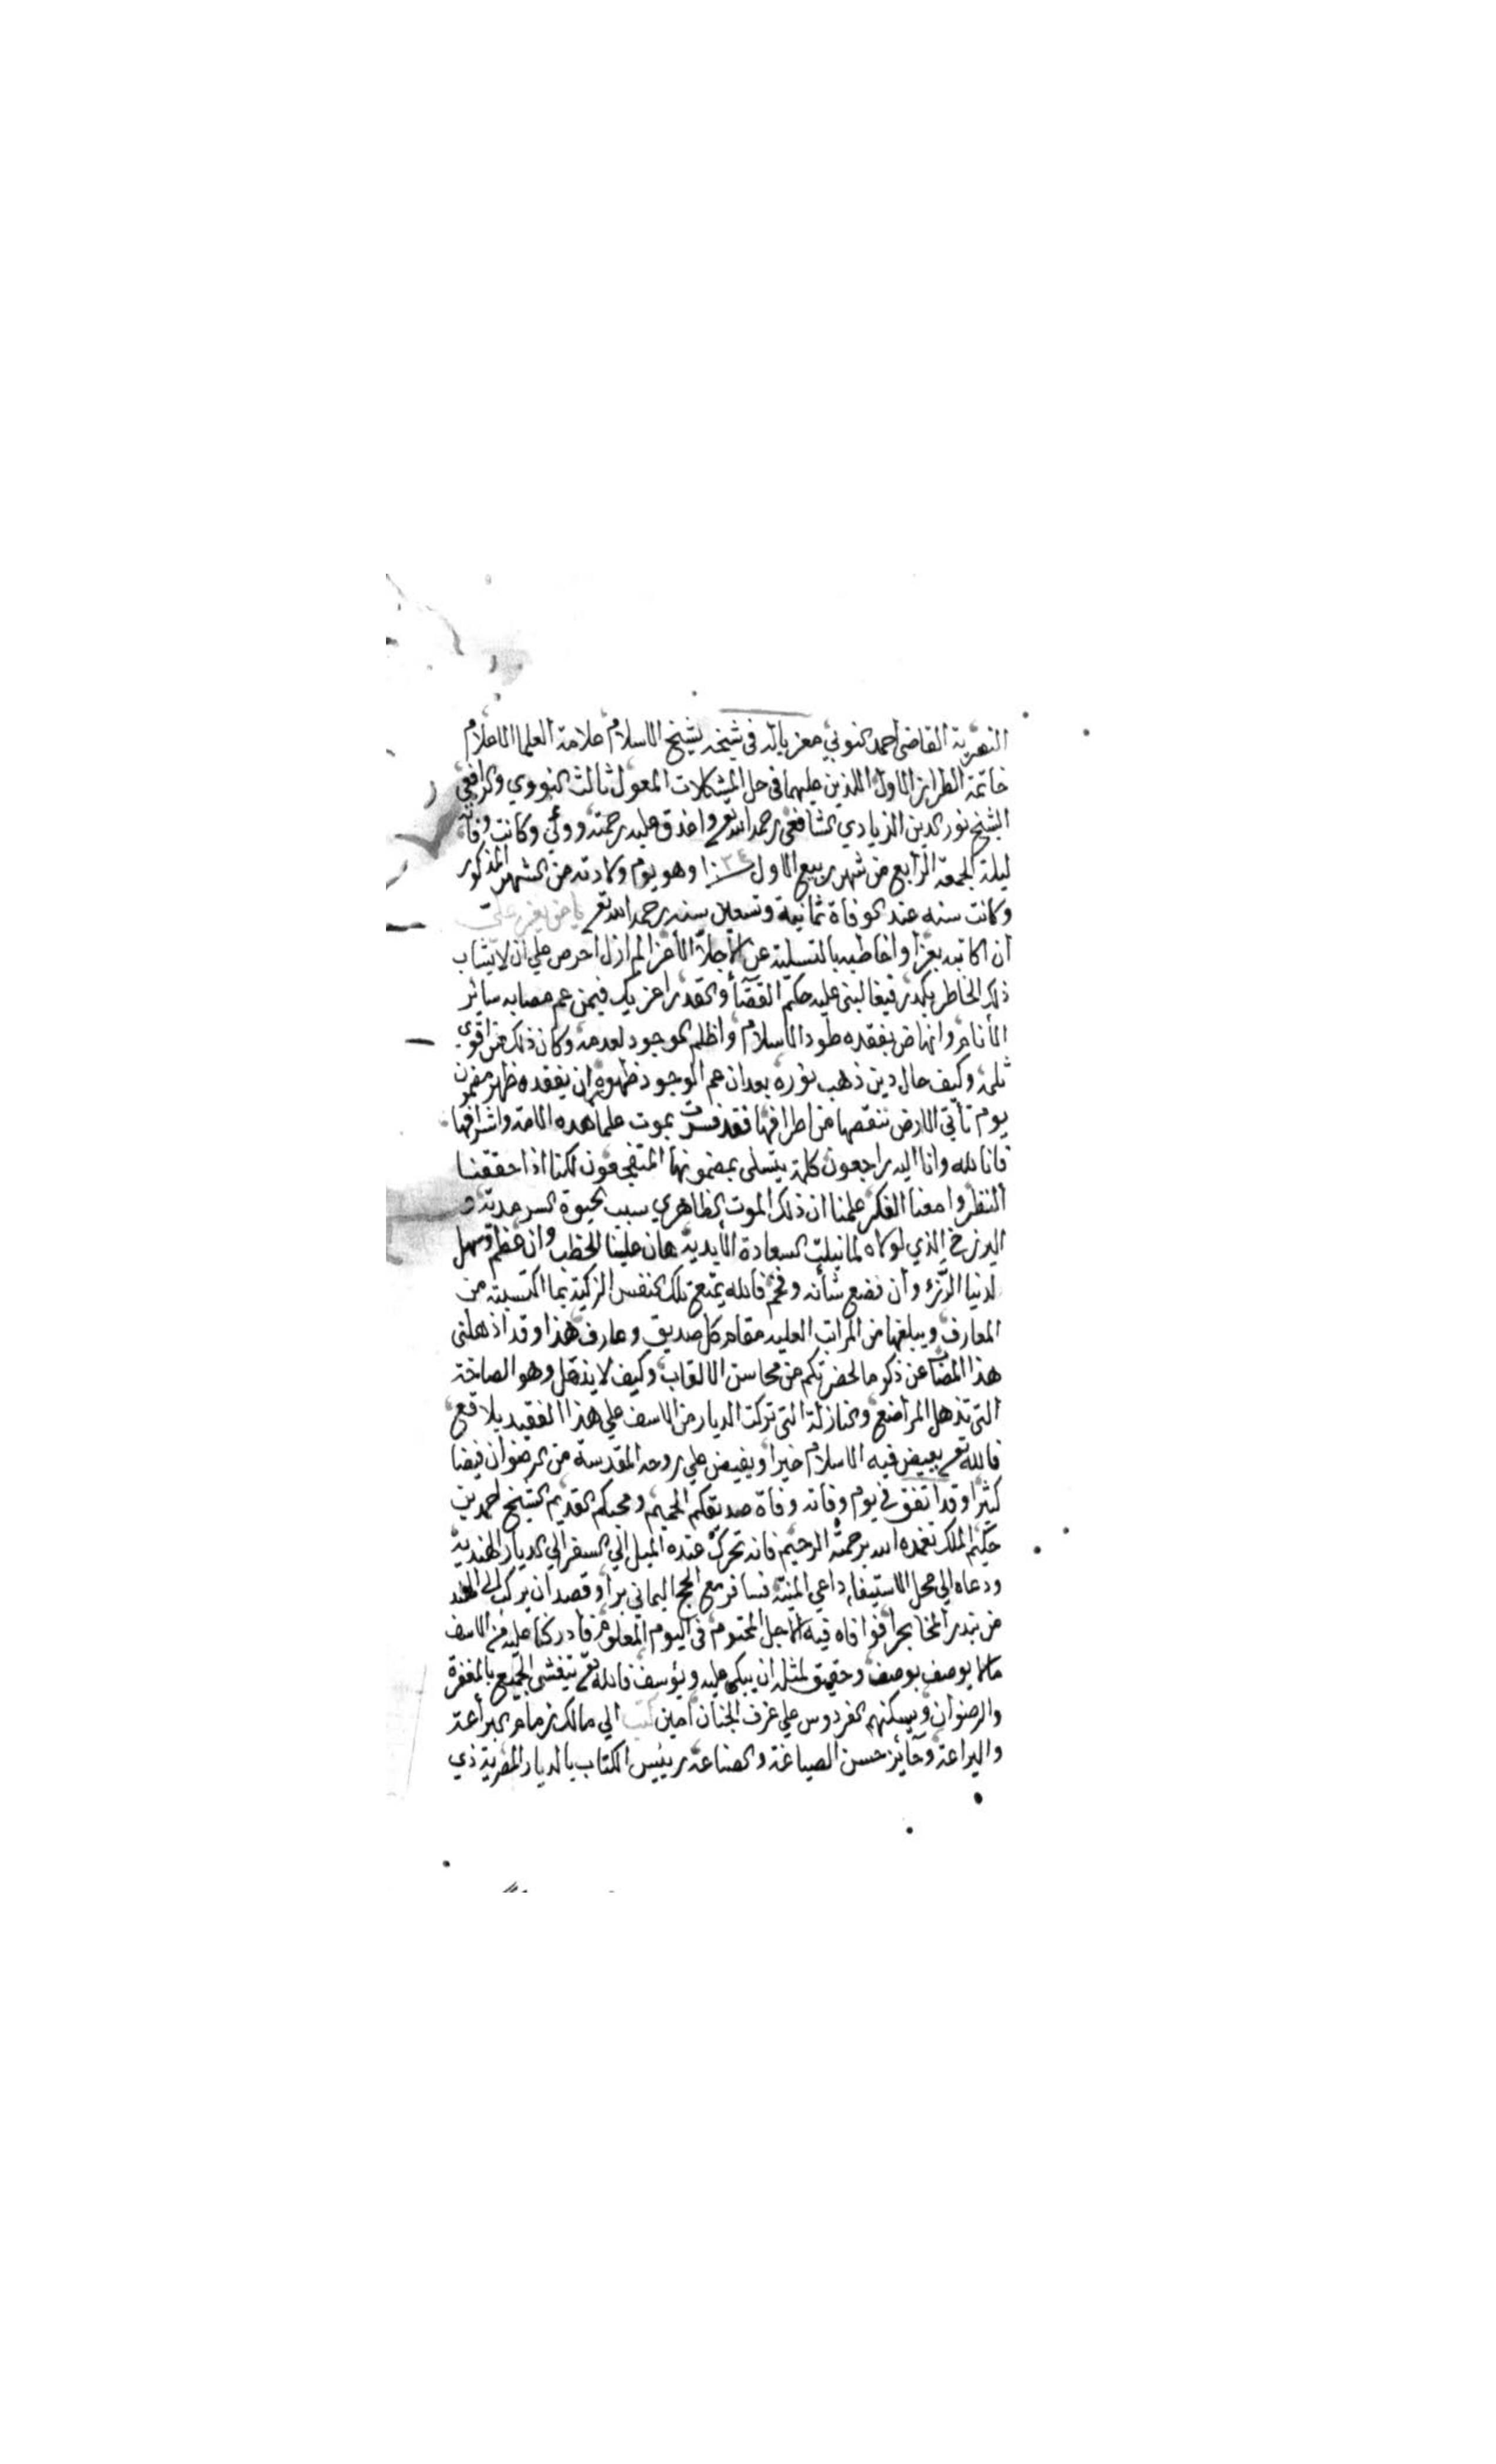 القاضي أحمد النوبي معزيا له في شيخه شيخ الاسلام علامة العلما الاعلام
خاتمة الطراز الاول اللذين عليهما في حل المشكلات المعول ثالث النووي والرافعي
الشيخ نور الدين الزيادي الشافعي رحمه الله تع واغدق عليه رحمته ووكانت وفاته
ليلة الجمعة الرابع من شهر ربيع الاول وهو يوم ولادته من الشهر المذكور
وكانت سنه عند الوفاة ثمانية وتسعين سنه رحمه الله تع يعز علي
أن اكاتبه بعزا واخاطبه بالتسلية عن الأجلاء الأعزا لم ازل احرص علي ان لا يشاب
ذلك الخاطر بكدر فيما لبني عليه حكم القضاء والقدر اعزيك فيمن عم مصابه سائر
الأنام وانهاض بفقده طود الاسلام واظلم الوجود لعدمه وكان ذلك من اقوي
ثلمه وكيف حال دين ذهب نوره بعد ان عم الوجود ظهوره ان بفقده ظهر مضمون
يوم تأتي الارض ننقصها من اطرافها فقد فسرت بموت علما هذه الامة واشرافها
فانا لله وانا اليه راجعون كلمة يتسلى بمضمونها المتفجعون لكنا اذا حققنا
النظر وامعنا الفكر علمنا ان ذلك الموت الظاهري سبب الحيوة السرمدية و
البرزخ الذي لولاه لما نيلت السعادة الأبدية هان علينا الخطب وان عظم وسهل
لدينا الرزء وان فضع شأنه وفخم فالله يمتع تلك النفس الزكية بما اكتسبته من
المعارف ويبلغها من المراتب العليه مقام كل صديق وعارف هذا وقد اذهلني
هذا المصاب عن ذكر ما لحضرتكم من محاسن الالقاب وكيف لا يذهل وهو الصاخة
التي تذهل المراضع والنازلة التي تركت الديار من الاسف علي هذا الفقيد بلاقع
فالله تع يعيض فيه الاسلام خيرا ويفيض علي روحه المقدسة من الرضوان فيضا
كثيرا وقد اتفق في يوم وفاته وفاة صديقكم الحميم ومحبكم القديم الشيخ احمد بن
حكيم الملك تغمده الله برحمته الرحيم فانه تحرك عنده الميل الي السفر الي الديار الهندية
ودعاه الي محل الاستيفا داعي المنية فسافر مع الحج اليماني برا وقصد ان يركب الي الهند
من بندر المخا بحرا فوافاه فيه الاجل المحتوم في اليوم المعلوم فادركنا عليه من الاسف
مالا يوصف بوصف وحقيق لمثله ان يبكي عليه ويؤسف فالله تع يتغشى الجميع بالمغفرة
والرضوان ويسكنهم الفردوس علي غرف الجنان امين كتب الي مالك زمام البراعة
واليراعة وحائز حسن الصياغة والصناعة رييس الكتاب بالديار المصرية ذي